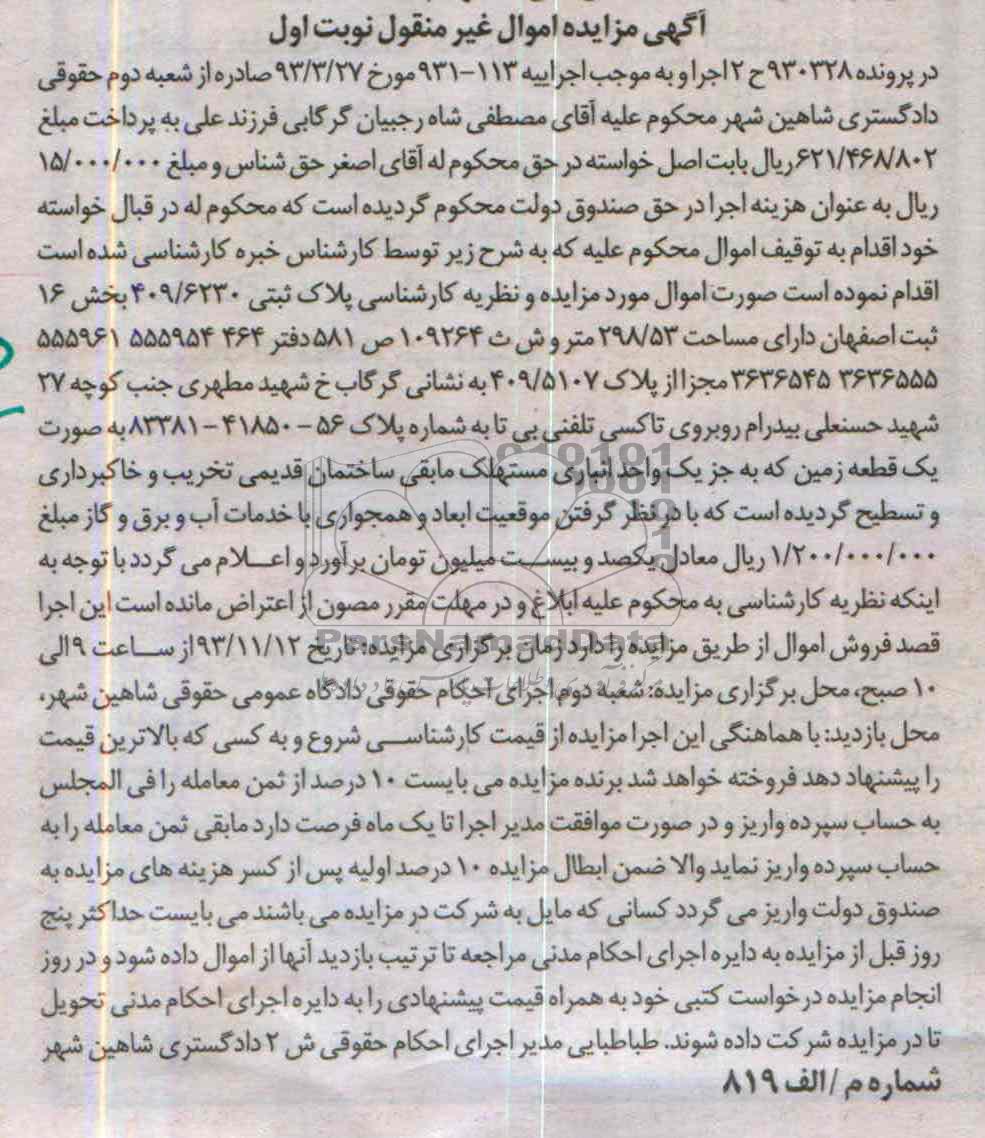 آگهی مزایده اموال غیر منقول نوبت اول
در پرونده ۹۳۰۳۲۸ ح ۲ اجرا و به موجب اجراییه ۱۱۳-۹۳۱ مورخ ۹۳/۳/۲۷ صادره از شعبه دوم حقوقی
دادگستری شاهین شهر محکوم علیه آقای مصطفی شاه رجبیان گرگابی فرزند علی به پرداخت مبلغ
۶۲۱/۴۶۸/۸۰۲ ریال بابت اصل خواسته در حق محکوم له آقای اصغر حق شناس و مبلغ ۱۵/۰۰۰/۰۰۰
ریال به عنوان هزینه اجرا در حق صندوق دولت محکوم گردیده است که محکوم له در قبال خواسته
خود اقدام به توقیف اموال محکوم علیه که به شرح زیر توسط کارشناس خبره کارشناسی شده است
اقدام نموده است صورت اموال مورد مزایده و نظریه کارشناسی پلاک ثبتی ۴۰۹/۶۲۳۰ بخش ۱۶
ثبت اصفهان دارای مساحت ۲۹۸/۵۳ متر و ش ث ۱۰۹۲۶۴ ص ۵۸۱ دفتر ۴۶۴ ۵۵۵۹۵۴ ۵۵۵۹۶۱
۳۶۳۶۵۵۵ ۳۶۳۶۵۴۵ مجزا از پلاک ۴۰۹/۵۱۰۷ به نشانی گرگاب خ شهید مطهری جنب کوچه ۲۷
شهید حسنعلی بیدرام روبروی تاکسی تلفنی بی تا به شماره پلاک ۵۶ - ۴۱۸۵۰ - ۸۳۳۸۱ به صورت
یک قطعه زمین که به جز یک واحد انباری مستهلک مابقی ساختمان قدیمی تخریب و خاکبرداری
و تسطیح گردیده است که با در نظر گرفتن موقعیت ابعاد و همجواری با خدمات آب و برق و گاز مبلغ
۱/۲۰۰/۰۰۰/۰۰۰ ریال معادل یکصد و بیست میلیون تومان برآورد و اعلام می گردد با توجه به
اینکه نظریه کارشناسی به محکوم علیه ابلاغ و در مهلت مقرر مصون از اعتراض مانده است این اجرا
قصد فروش اموال از طریق مزایده را دارد زمان برگزاری مزایده: تاریخ ۹۳/۱۱/۱۲ از ساعت ۹ الی
۱۰ صبح، محل برگزاری مزایده: شعبه دوم اجرای احکام حقوقی دادگاه عمومی حقوقی شاهین شهر،
محل بازدید: با هماهنگی این اجرا مزایده از قیمت کارشناسی شروع و به کسی که بالاترین قیمت
را پیشنهاد دهد فروخته خواهد شد برنده مزایده می بایست ۱۰ درصد از ثمن معامله را فی المجلس
به حساب سپرده واریز و در صورت موافقت مدیر اجرا تا یک ماه فرصت دارد مابقی ثمن معامله را به
حساب سپرده واریز نماید والا ضمن ابطال مزایده ۱۰ درصد اولیه پس از کسر هزینه های مزایده به
صندوق دولت واریز می گردد کسانی که مایل به شرکت در مزایده می باشند می بایست حداکثر پنج
روز قبل از مزایده به دایره اجرای احکام مدنی مراجعه تا ترتیب بازدید آنها از اموال داده شود و در روز
انجام مزایده درخواست کتبی خود به همراه قیمت پیشنهادی را به دایره اجرای احکام مدنی تحویل
تا در مزایده شرکت داده شوند. طباطبایی مدیر اجرای احکام حقوقی ش ۲ دادگستری شاهین شهر
شماره م / الف ۸۱۹
ParsNamadData